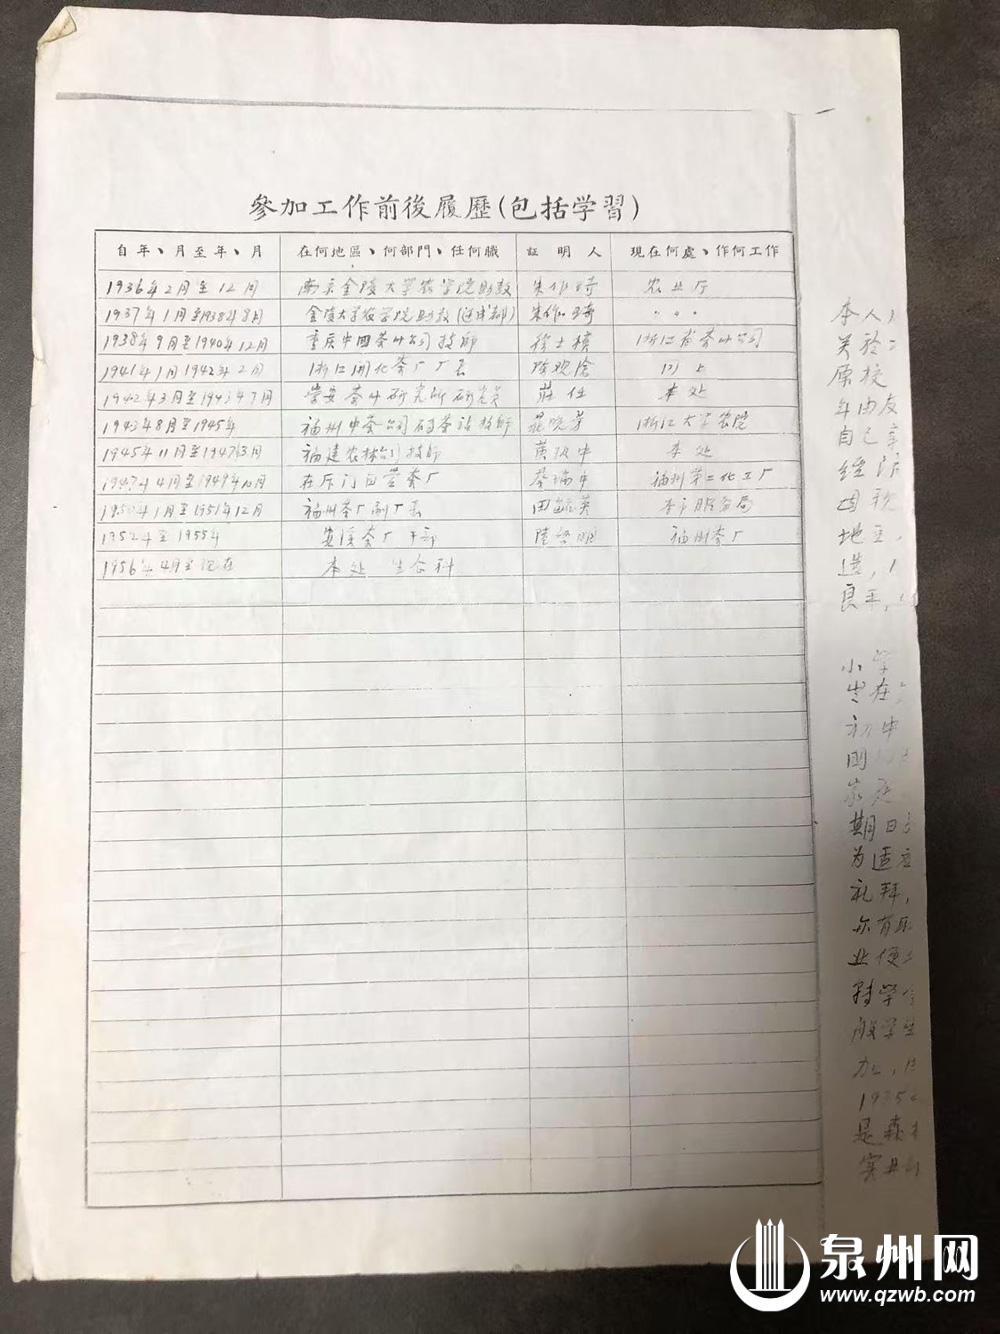 參加工作前後履歷(包括学習)
自年、月至年、月 在何地區、何部門、任何職 証明人 現在何處、作何工作
1936年2月至12月 南京金陵大学农学院助教 朱作琦 农业厅
1937年1月至1938年8月 金陵大学农学院助教(迁成都) 朱作琦 〃 〃
1938年9月至1940年12月 重庆中国茶叶公司技師 徐士模 浙江省茶叶公司
1941年1月1942年2月 浙江開化茶厂厂長 陈观沧 同上
1942年3月至1943年7月 崇安茶叶研究所研究員 莊任 本处
1943年8月至1945年 福州中茶公司 技師 浙江大学农院
1945年11月至1947年3月 福建农林公司技師 本处
1947年4月至1949年10月 在厦门自营茶厂 蔡瑞中 福州第二化工厂
1950年1月至1951年12月 福州茶厂副厂長 田毓英 本市服务局
1952年至1955年 安溪茶厂干部 陸啓明 福州茶厂
1956年4月至现在 本处 生合科
本人
关於
原校
年由友
自己
经济
因
地主,
造,
良主,
小学
生在
初中
国
家庭
期日
为适应
礼拜,
亦有
业便
转学
般学生
加,
1935
是森
实业
泉州网
www.qzwb.com